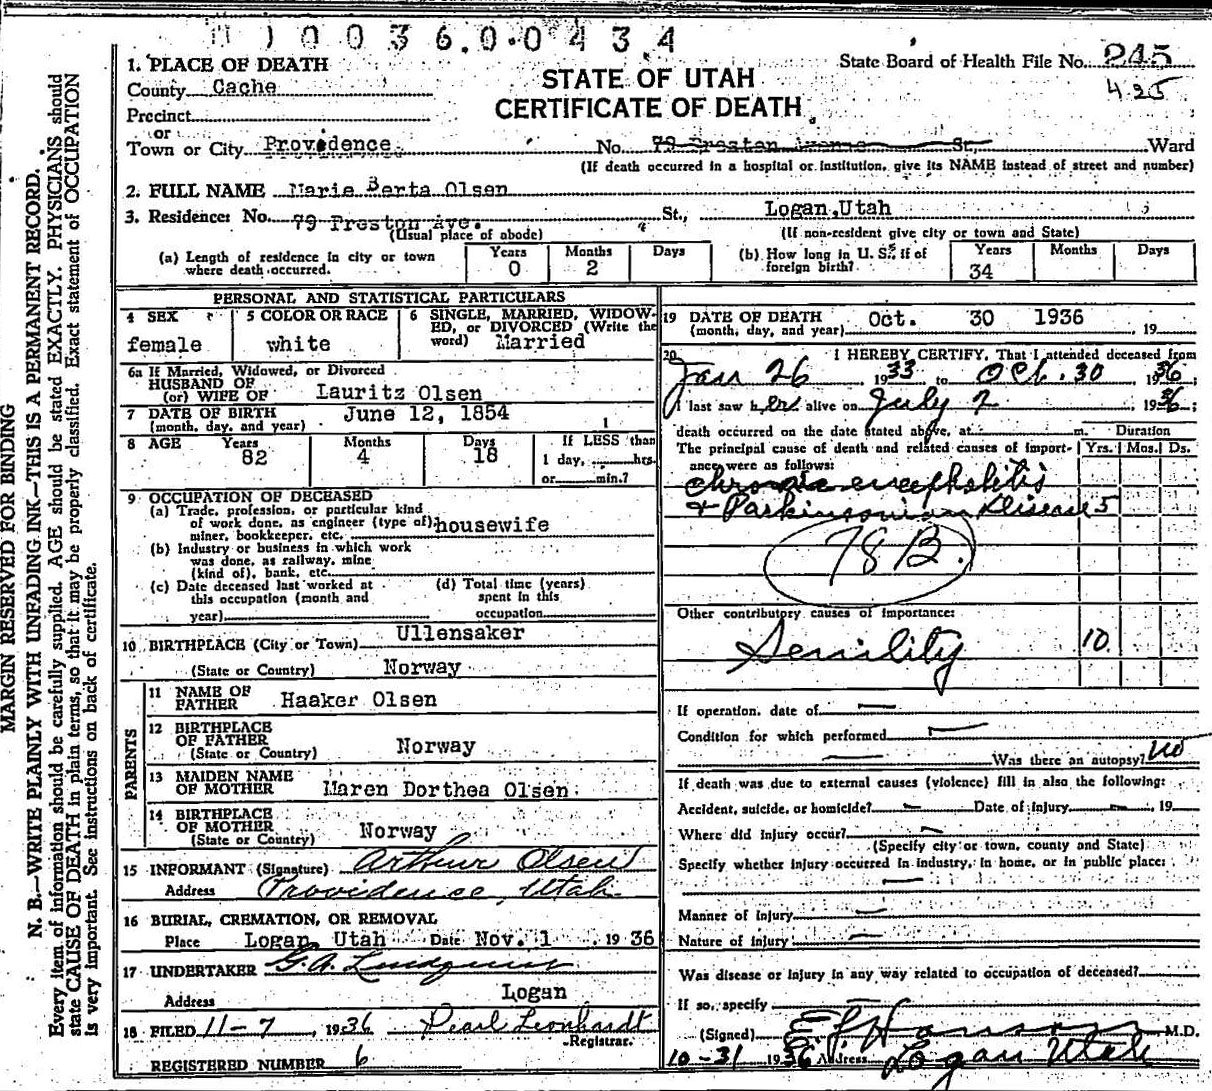 1 0 0 3 6 0 0 4 3 4
MARGIN RESERVED FOR BINDING
N. B.—WRITE PLAINLY WITH UNFADING INK—THIS IS A PERMANENT RECORD.
Every item of information should be carefully supplied. AGE should be stated EXACTLY. PHYSICIANS should
state CAUSE OF DEATH in plain terms, so that it may be properly classified. Exact statement of OCCUPATION
is very important. See instructions on back of certificate.
1. PLACE OF DEATH
County Cache
Precinct
or
Town or City Providence
STATE OF UTAH
CERTIFICATE OF DEATH
State Board of Health File No. 245
425
No. 79 Preston Avenue St., Ward
(If death occurred in a hospital or institution, give its NAME instead of street and number)
2. FULL NAME Marie Berta Olsen
3. Residence: No. 79 Preston Ave. St., Logan, Utah
(Usual place of abode) (If non-resident give city or town and State)
(a) Length of residence in city or town where death occurred. Years 0 Months 2 Days
(b) How long in U. S., if of foreign birth? Years 34 Months Days
PERSONAL AND STATISTICAL PARTICULARS
4 SEX female
5 COLOR OR RACE white
6 SINGLE, MARRIED, WIDOWED, or DIVORCED (Write the word) Married
6a If Married, Widowed, or Divorced
HUSBAND OF
(or) WIFE OF Lauritz Olsen
7 DATE OF BIRTH
(month, day, and year) June 12, 1854
8 AGE Years 82 Months 4 Days 18 If LESS than
1 day, hrs.
or min.?
9 OCCUPATION OF DECEASED
(a) Trade, profession, or particular kind
of work done, as engineer (type of)
miner, bookkeeper, etc. housewife
(b) Industry or business in which work
was done, as railway, mine
(kind of), bank, etc.
(c) Date deceased last worked at
this occupation (month and
year)
(d) Total time (years)
spent in this
occupation
10 BIRTHPLACE (City or Town) Ullensaker
(State or Country) Norway
PARENTS
11 NAME OF
FATHER Haaker Olsen
12 BIRTHPLACE
OF FATHER
(State or Country) Norway
13 MAIDEN NAME
OF MOTHER Maren Dorthea Olsen
14 BIRTHPLACE
OF MOTHER
(State or Country) Norway
15 INFORMANT (Signature) Arthur Olsen
Address Providence, Utah
16 BURIAL, CREMATION, OR REMOVAL
Place Logan, Utah Date Nov. 1 1936
17 UNDERTAKER G. A. Lindquist
Address Logan
18 FILED 11-7, 1936 Pearl Leonhardt
Registrar.
REGISTERED NUMBER 6
19 DATE OF DEATH
(month, day, and year) Oct. 30 1936, 19
20 I HEREBY CERTIFY, That I attended deceased from
Jan 26, 1933 to Oct. 30, 1936
I last saw her alive on July 2, 1936;
death occurred on the date stated above, at m. Duration
The principal cause of death and related causes of importance were as follows: Yrs. Mos. Ds.
chronic encephalitis
+ Parkinsonian Disease 5
78 B.
Other contributory causes of importance:
Senility 10
If operation, date of —
Condition for which performed —
— Was there an autopsy? no
If death was due to external causes (violence) fill in also the following:
Accident, suicide, or homicide? — Date of injury —, 19
Where did injury occur? —
(Specify city or town, county and State)
Specify whether injury occurred in industry, in home, or in public place:
—
Manner of injury —
Nature of injury —
Was disease or injury in any way related to occupation of deceased?
If so, specify
(Signed) M.D.
10-31 1936 Address Logan Utah